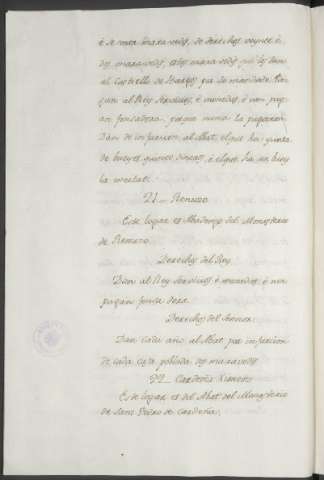 é se maravedis, de derechos veynte é
dos maravedis, estos maravedis que los dan
al Castiello de Burgos, por do mandado. Pa-
gan al Rey servicios, é monedas, é non pa-
gan fonsadera, porque nunca la pagaron.
Dan de infurcion al Abat, el que ha yunta
de bueyes quince dineros, é el que ha un buey
la meetat.
21 _ Renuzo
Este logar es Abadengo del Monesterio
de Renuzo.
Derechos del Rey
Dan al Rey servicios é monedas, é non
pagan fonsadera.
Derechos del Sennor.
Dan cada año al Abat por infurcion
de cada casa poblada dos maravedis.
22 Cardeña Ximeno
Este logar es del Abat del Monesterio
de Sant Pedro de Cardeña.